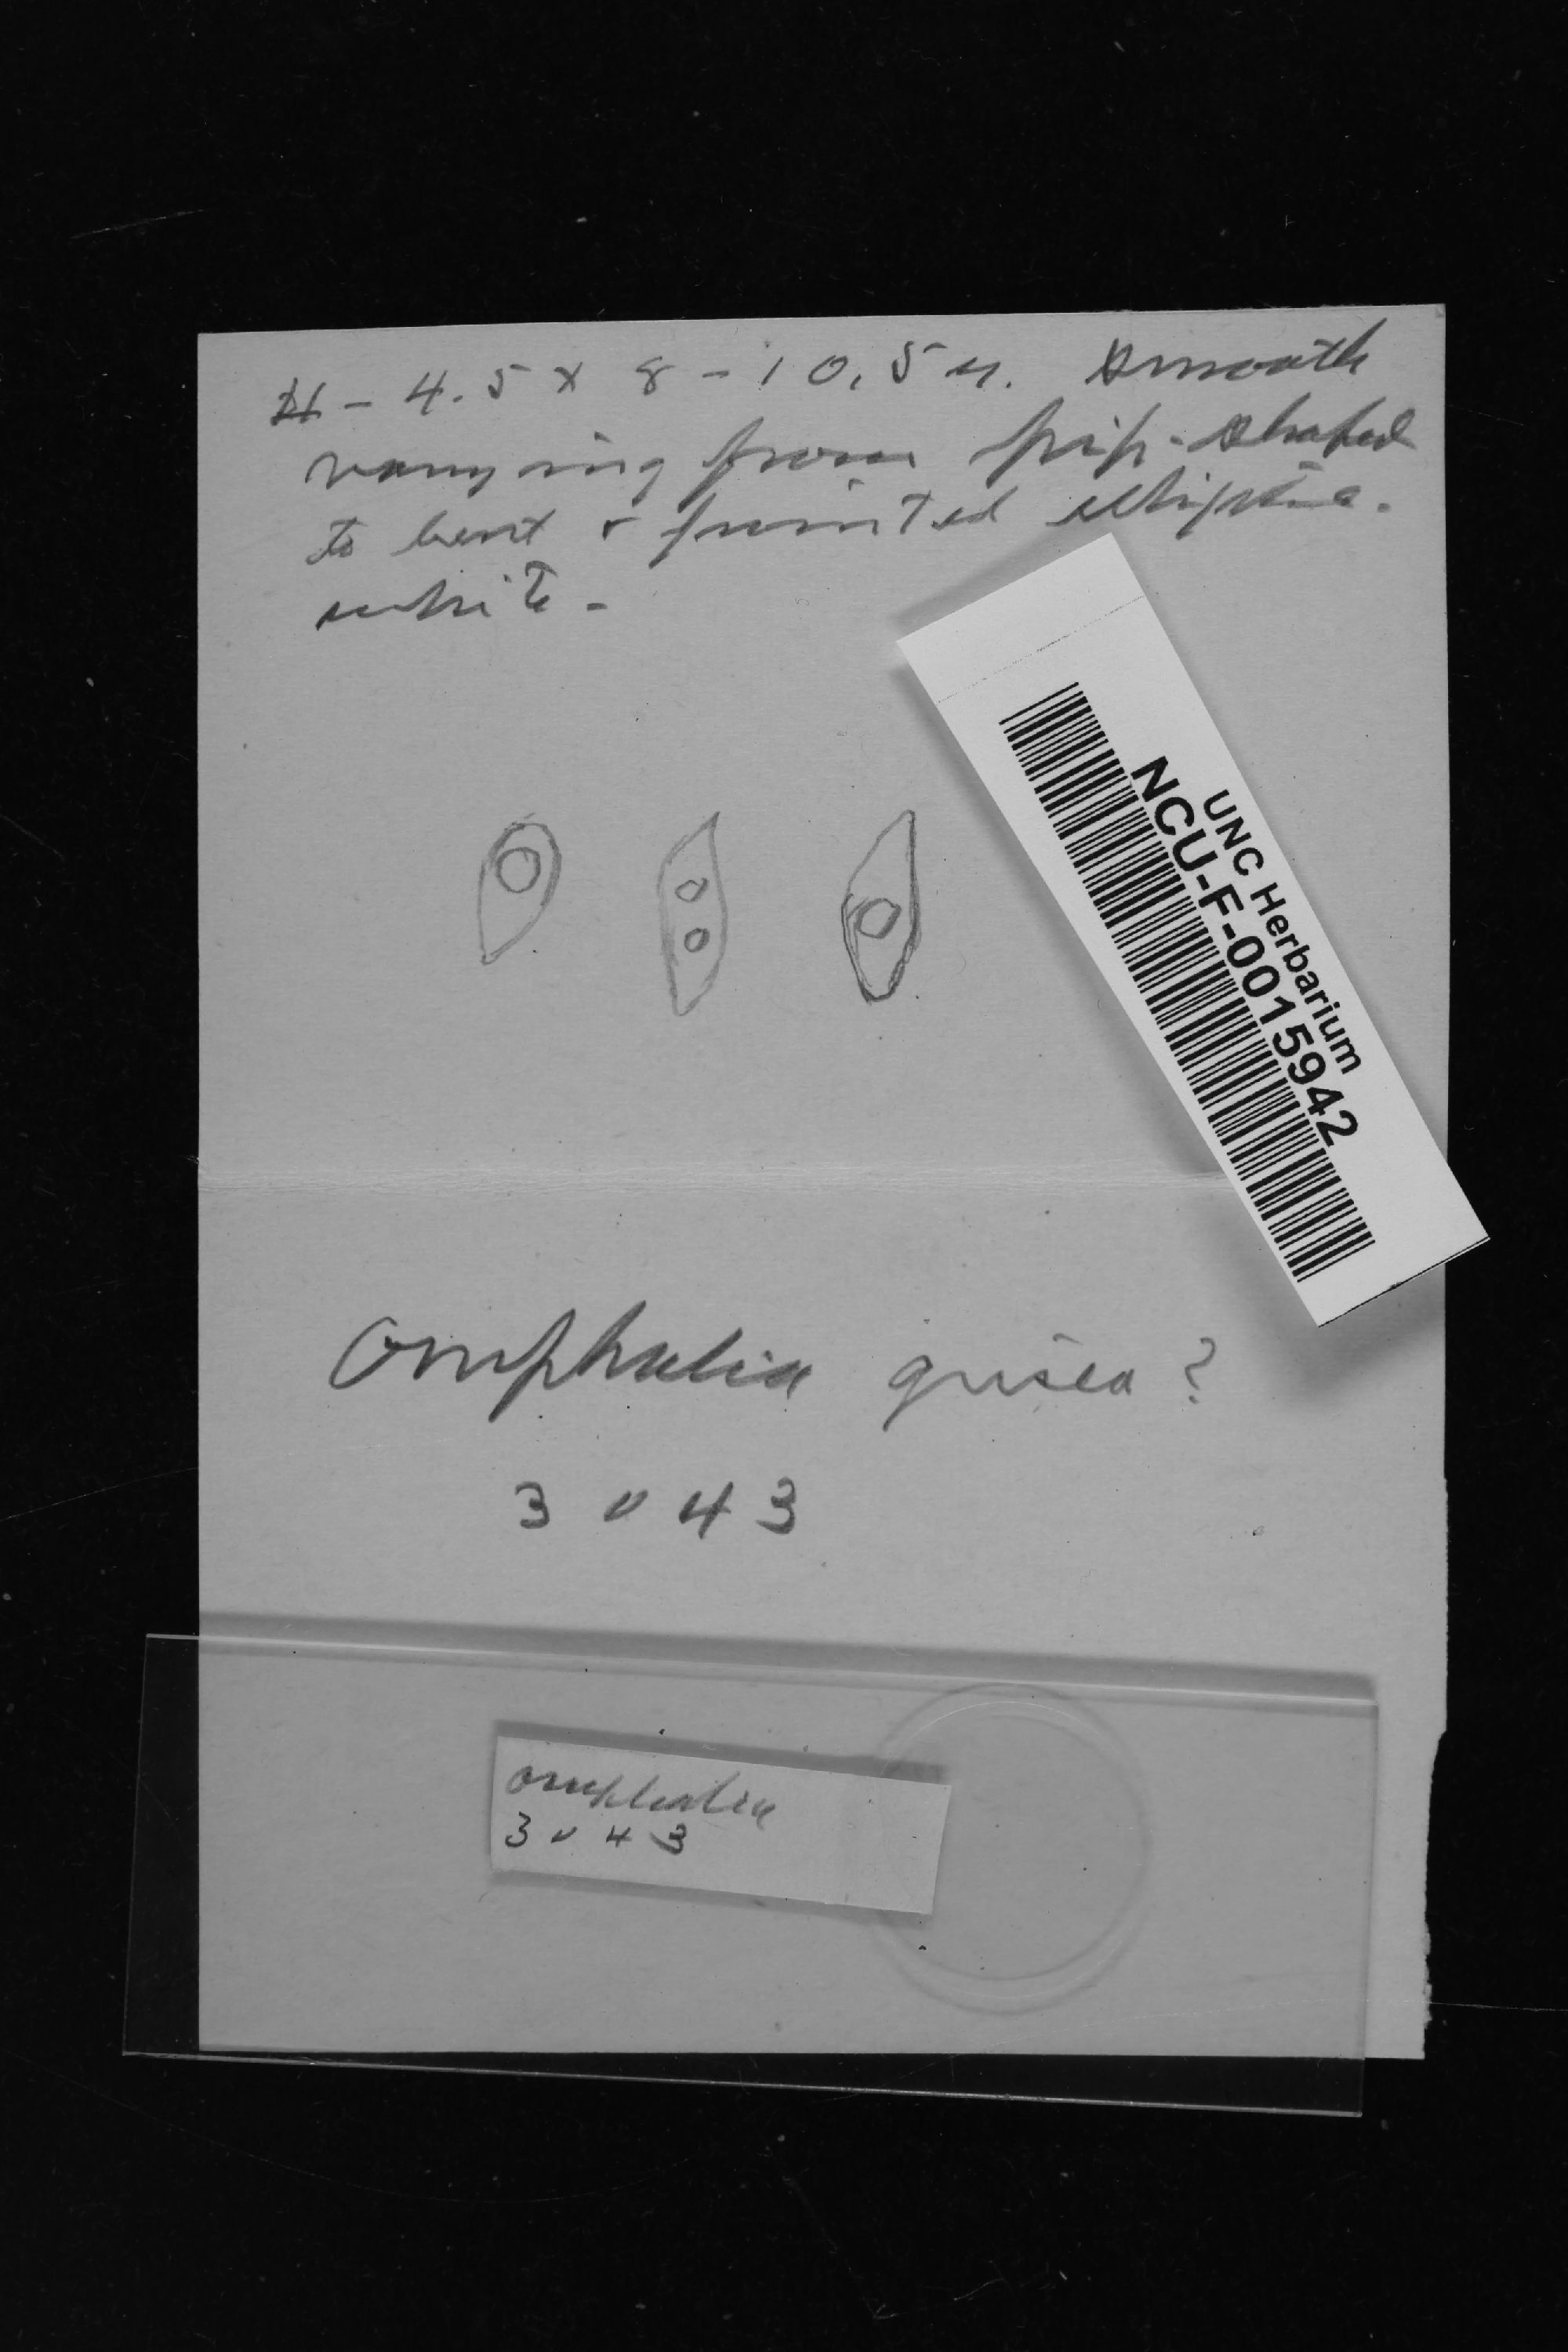 4 - 4.5 x 8 - 10.5 µ. Smooth
varying from pip-shaped
to bent & pointed elliptic.
white -
UNC Herbarium
NCU-F-0015942
Omphalia grisea?
3043
Omphalia
3043